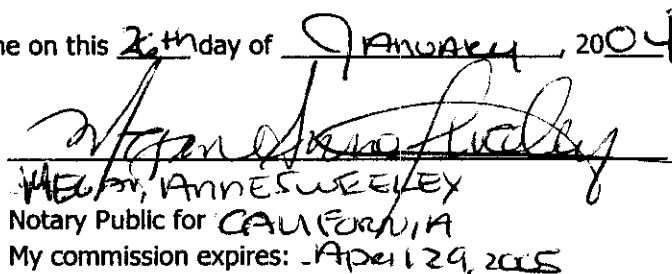 me on this 26th day of January, 2004
Megan Anne Sweeley
MEGAN ANNE SWEELEY
Notary Public for CALIFORNIA
My commission expires: April 29, 2005